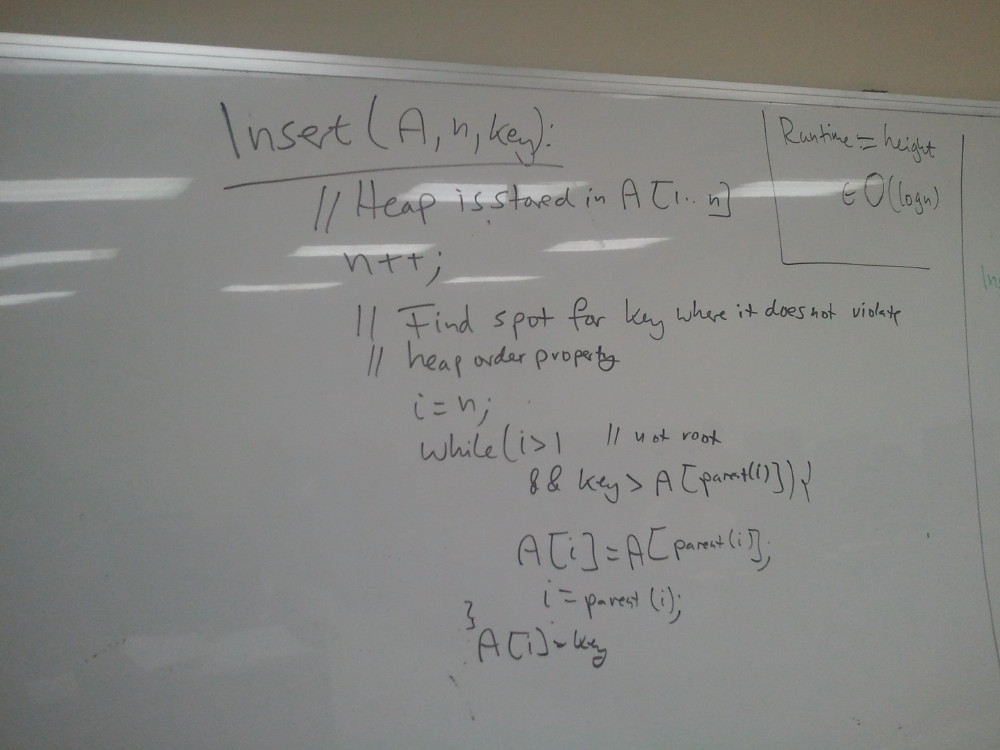 Insert(A,n,key):
// Heap is stored in A[1..n]
n++;
// Find spot for key where it does not violate
// heap order property
i=n;
while(i>1 // not root
&& key > A[parent(i)]){
A[i]=A[parent(i)];
i=parent(i);
}
A[i]=key
Runtime = height
∈ O(logn)